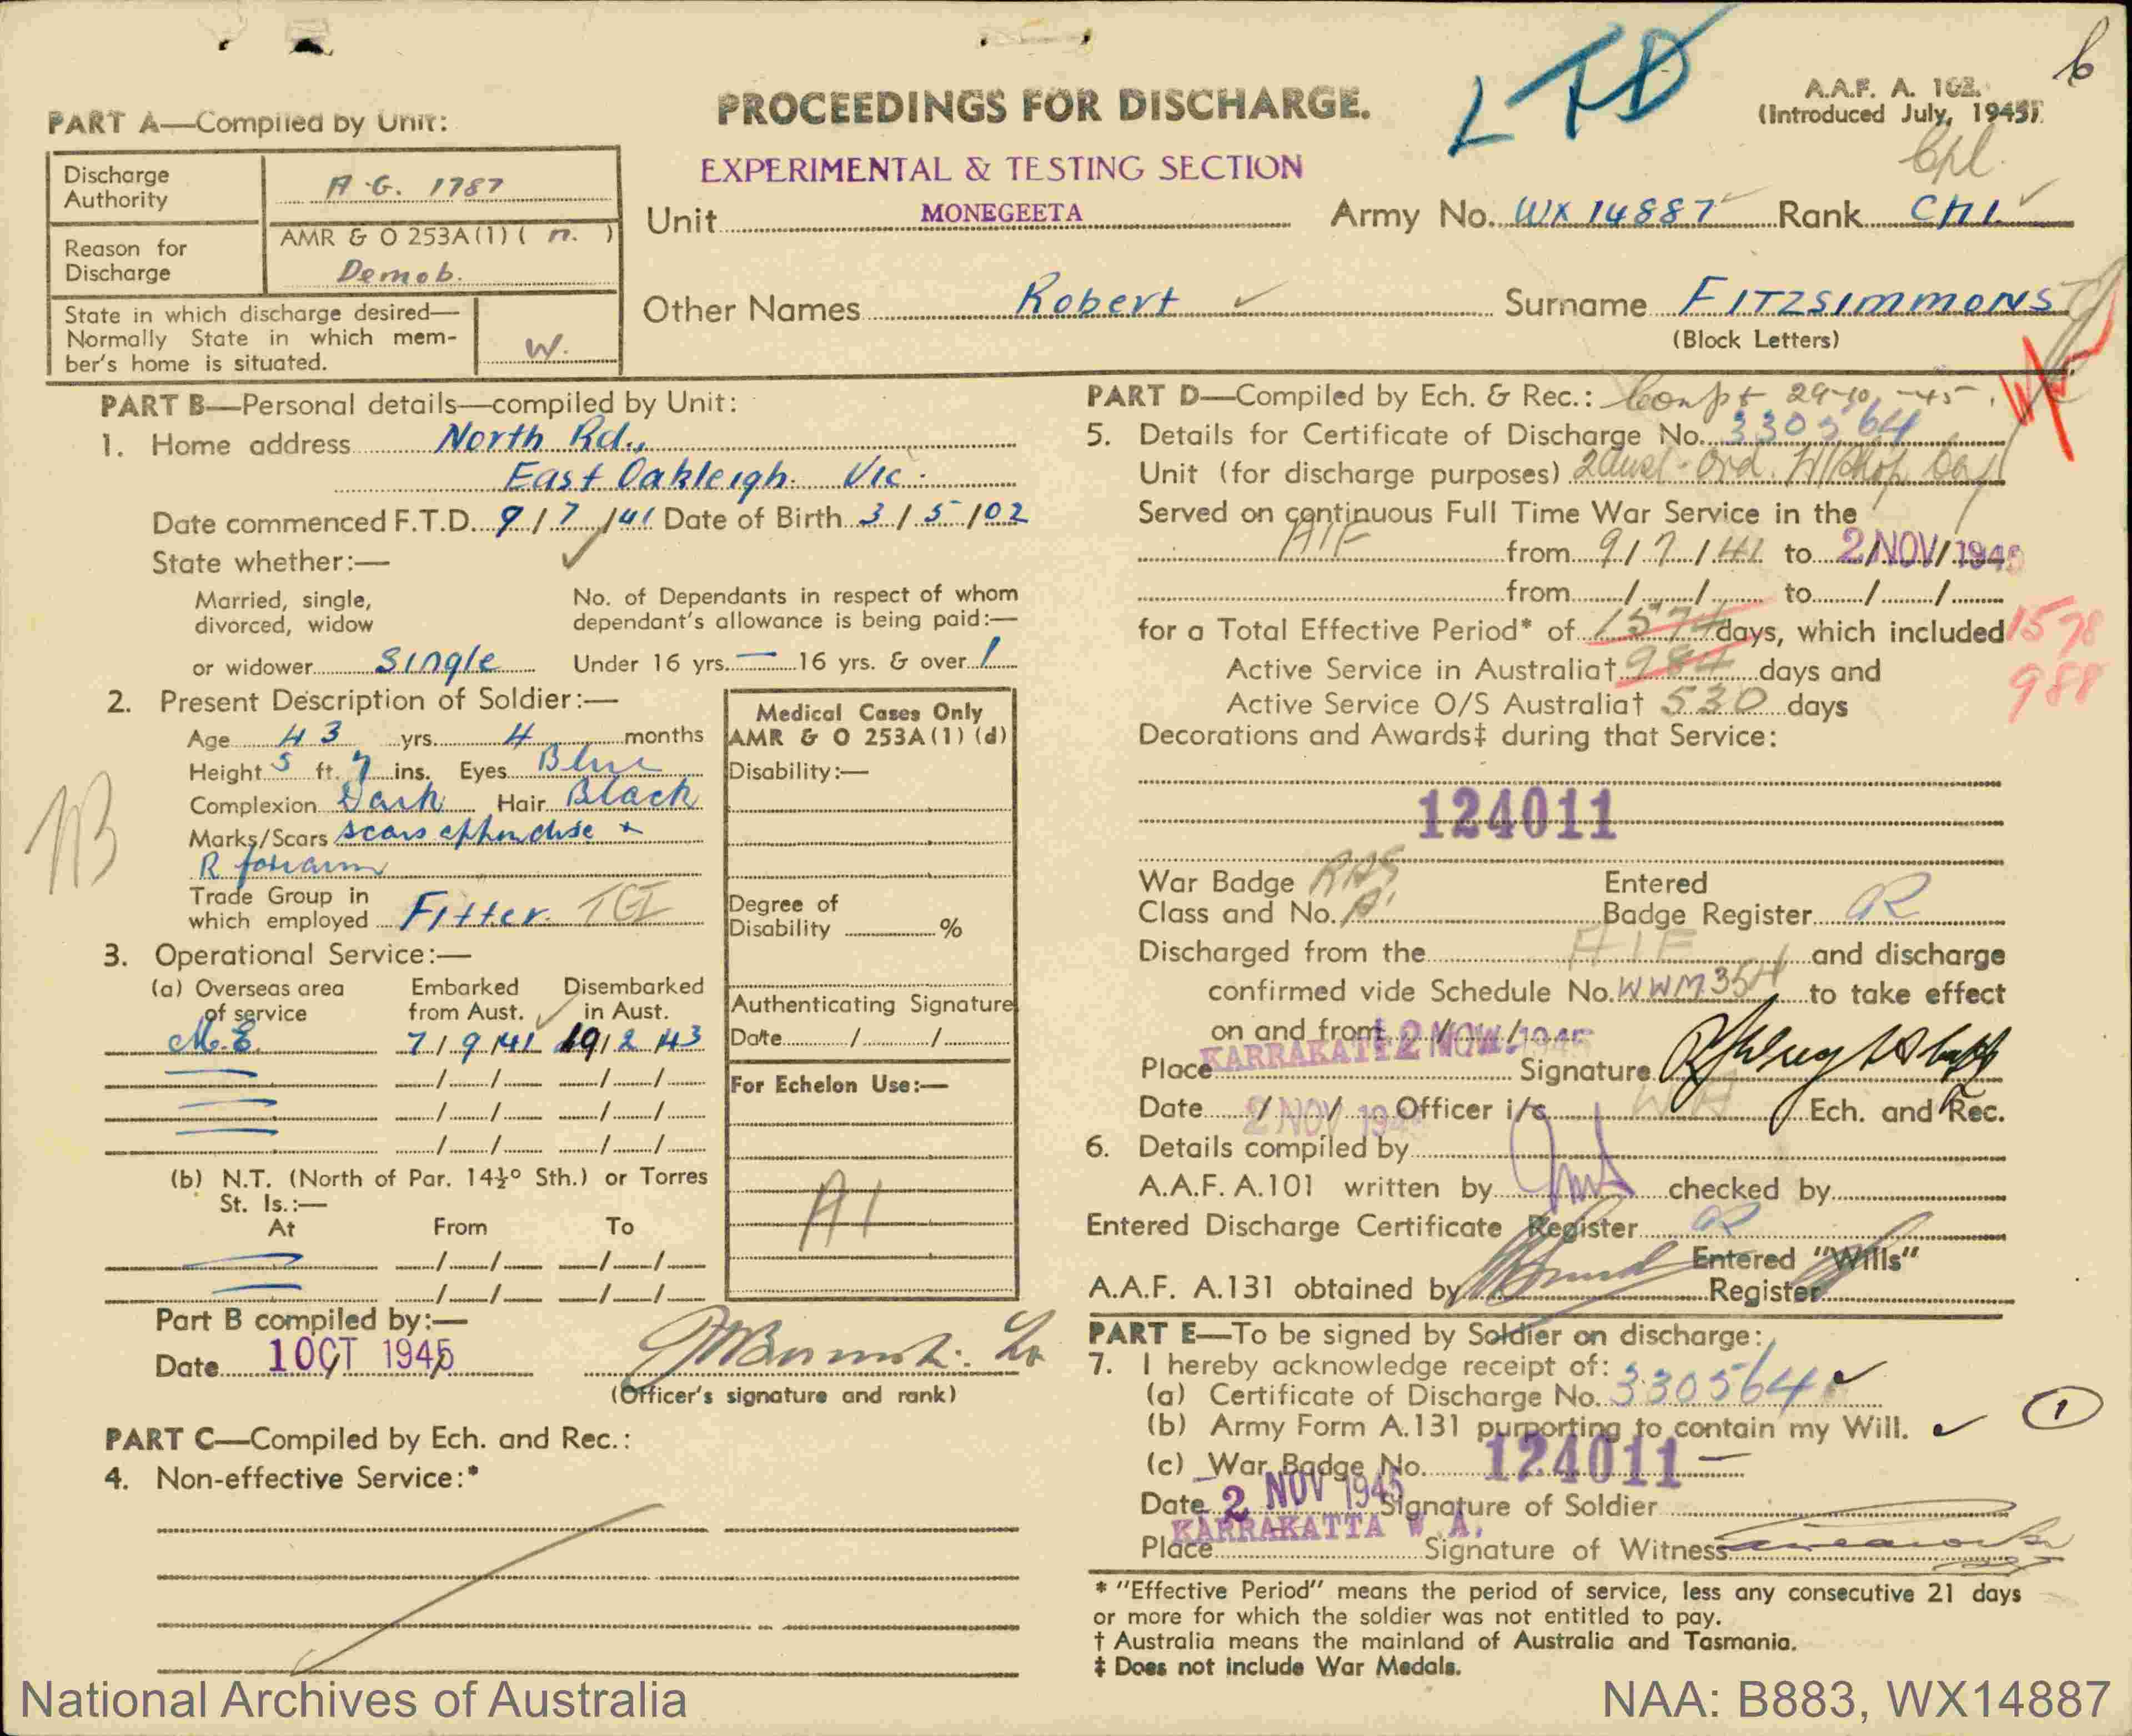 PROCEEDINGS FOR DISCHARGE.
LTD
6
A.A.F. A. 102.
(Introduced July, 1945)
Cpl.
PART A—Compiled by Unit:
Discharge Authority A.G. 1787
Reason for Discharge AMR & O 253A(1) ( n. )
Demob.
State in which discharge desired—
Normally State in which mem-
ber's home is situated. W.
EXPERIMENTAL & TESTING SECTION
Unit MONEGEETA Army No. WX 14887 Rank
Other Names Robert Surname FITZSIMMONS
(Block Letters)
PART B—Personal details—compiled by Unit:
1. Home address North Rd.,
East Oakleigh. Vic.
Date commenced F.T.D. 9/7/41 Date of Birth 3/5/02
State whether:—
Married, single,
divorced, widow
or widower Single
No. of Dependants in respect of whom
dependant's allowance is being paid:—
Under 16 yrs. — 16 yrs. & over 1
2. Present Description of Soldier:—
Age 43 yrs. 4 months
Height 5 ft. 7 ins. Eyes Blue
Complexion Dark Hair Black
Marks/Scars scars
R forearm
Trade Group in
which employed Fitter. TGI
3. Operational Service:—
(a) Overseas area
of service
Embarked
from Aust.
Disembarked
in Aust.
M.E. 7/9/41 19/2/43
(b) N.T. (North of Par. 14½° Sth.) or Torres
St. Is.:—
At From To
Part B compiled by:—
Date 1 OCT 1945
(Officer's signature and rank)
Medical Cases Only
AMR & O 253A(1)(d)
Disability:—
Degree of
Disability %
Authenticating Signature
Date / /
For Echelon Use:—
A1
PART C—Compiled by Ech. and Rec.:
4. Non-effective Service:*
PART D—Compiled by Ech. & Rec.: 29-10-45
5. Details for Certificate of Discharge No. 330564
Unit (for discharge purposes) 2 Aust. Ord. W/Shop Coy
Served on continuous Full Time War Service in the
AIF from 9/7/41 to 2/NOV/1945
from / / to / /
for a Total Effective Period* of 1574 days, which included 1578
Active Service in Australia† 984 days and 988
Active Service O/S Australia† 530 days
Decorations and Awards‡ during that Service:
124011
War Badge RAS
Class and No. A'
Entered
Badge Register
Discharged from the AIF and discharge
confirmed vide Schedule No. WWM354 to take effect
on and from 2 NOV 1945
Place KARRAKATTA Signature
Date 2 NOV 1945 Officer i/c WA Ech. and Rec.
6. Details compiled by
A.A.F. A.101 written by checked by
Entered Discharge Certificate Register
A.A.F. A.131 obtained by
Entered "Wills"
Register
PART E—To be signed by Soldier on discharge:
7. I hereby acknowledge receipt of:
(a) Certificate of Discharge No. 330564
(b) Army Form A.131 purporting to contain my Will. 1
(c) War Badge No. 124011
Date 2 NOV 1945 Signature of Soldier
Place KARRAKATTA W.A. Signature of Witness
* "Effective Period" means the period of service, less any consecutive 21 days
or more for which the soldier was not entitled to pay.
† Australia means the mainland of Australia and Tasmania.
‡ Does not include War Medals.
National Archives of Australia
NAA: B883, WX14887